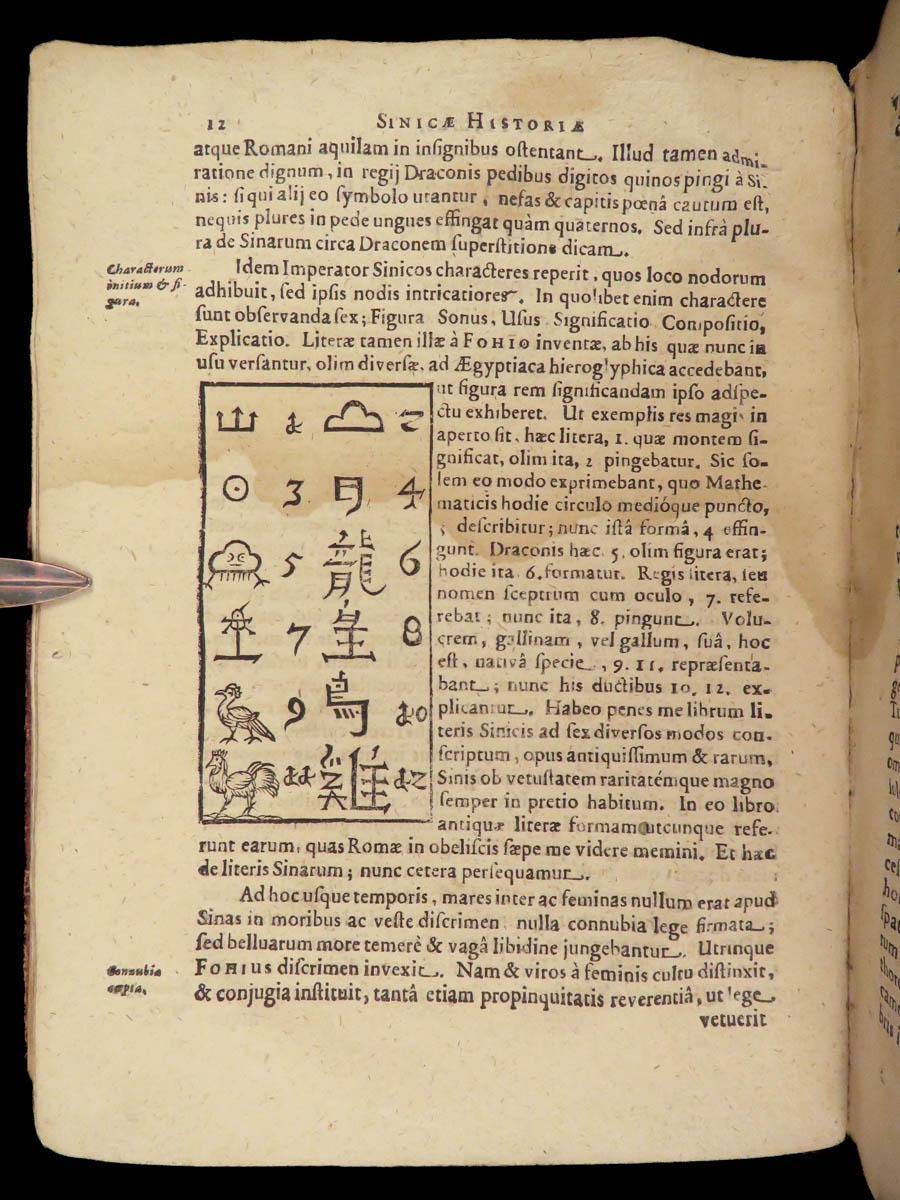 12 SINICÆ HISTORIÆ
atque Romani aquilam in inſignibus oſtentant. Illud tamen admi-
ratione dignum, in regij Draconis pedibus digitos quinos pingi à Si-
nis: ſi qui alij eo ſymbolo utantur, nefas & capitis pœnâ cautum eſt,
nequis plures in pede ungues effingat quàm quaternos. Sed infrà plu-
ra de Sinarum circa Draconem ſuperſtitione dicam.
Characterum
initium & fi-
gura.
Idem Imperator Sinicos characteres reperit, quos loco nodorum
adhibuit, ſed ipſis nodis intricatiores. In quolibet enim charactere
ſunt obſervanda ſex; Figura Sonus, Uſus Significatio Compoſitio,
Explicatio. Literæ tamen illæ à FOHIO inventæ, ab his quæ nunc in
uſu verſantur, olim diverſæ, ad Ægyptiaca hieroglyphica accedebant,
1 2
3 4
5 龍 6
7 8
9 鳥 10
11 雞 12
ut figura rem ſignificandam ipſo adſpe-
ctu exhiberet. Ut exemplis res magis in
aperto ſit, hæc litera, 1. quæ montem ſi-
gnificat, olim ita, 2 pingebatur. Sic ſo-
lem eo modo exprimebant, quo Mathe-
maticis hodie circulo medióque puncto,
3 deſcribitur; nunc iſtâ formâ, 4 effin-
gunt. Draconis hæc, 5, olim figura erat;
hodie ita 6. formatur. Regis litera, ſeu
nomen ſceptrum cum oculo, 7. refe-
rebat; nunc ita, 8. pingunt. Volu-
crem, gallinam, vel gallum, ſuâ, hoc
eſt, nativâ ſpecie, 9. 11. repræſenta-
bant; nunc his ductibus 10. 12. ex-
plicantur. Habeo penes me librum li-
teris Sinicis ad ſex diverſos modos con-
ſcriptum, opus antiquiſſimum & rarum,
Sinis ob vetuſtatem raritatémque magno
ſemper in pretio habitum. In eo libro
antiquæ literæ formam utcunque refe-
runt earum, quas Romæ in obeliſcis ſæpe me videre memini. Et hæc
de literis Sinarum; nunc cetera perſequamur.
Ad hoc uſque temporis, mares inter ac feminas nullum erat apud
Sinas in moribus ac veſte diſcrimen, nulla connubia lege firmata;
ſed belluarum more temerè & vagâ libidine jungebantur. Utrinque
Connubia
cœpta.
FOHIUS diſcrimen invexit. Nam & viros à feminis cultu diſtinxit,
& conjugia inſtituit, tantâ etiam propinquitatis reverentiâ, ut lege
vetuerit